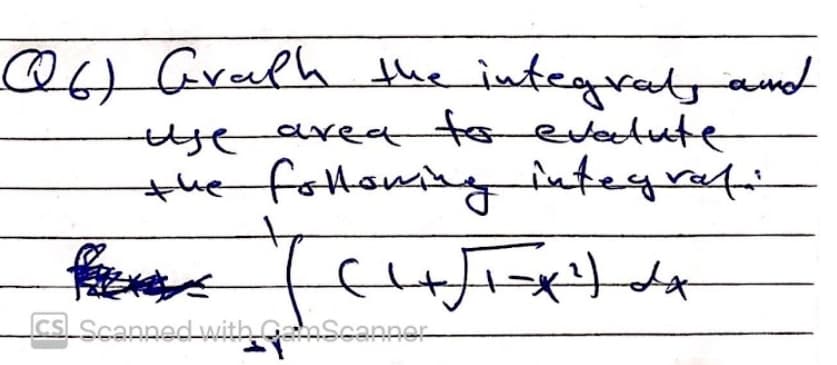 Q6) Graph the integrals and
use area to evalute
the following integral:
1
∫ (1+√1-x²) dx
-1
CS Scanned with CamScanner